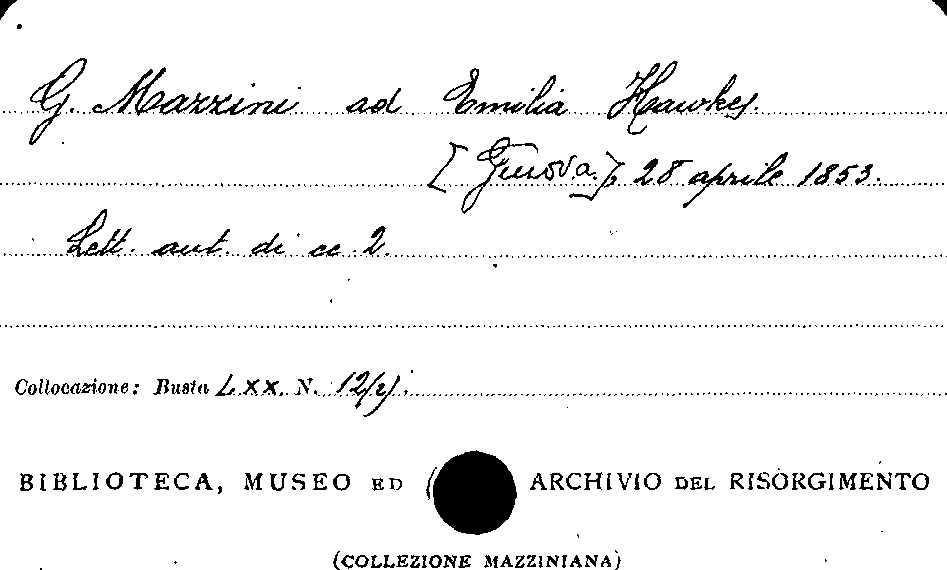 G. Mazzini ad Emilia Hawkes.
[Genova], 28 aprile 1853.
Lett. aut. di cc. 2.
Collocazione: Busta LXX. N. 12/2).
BIBLIOTECA, MUSEO ED ARCHIVIO DEL RISORGIMENTO
(COLLEZIONE MAZZINIANA)